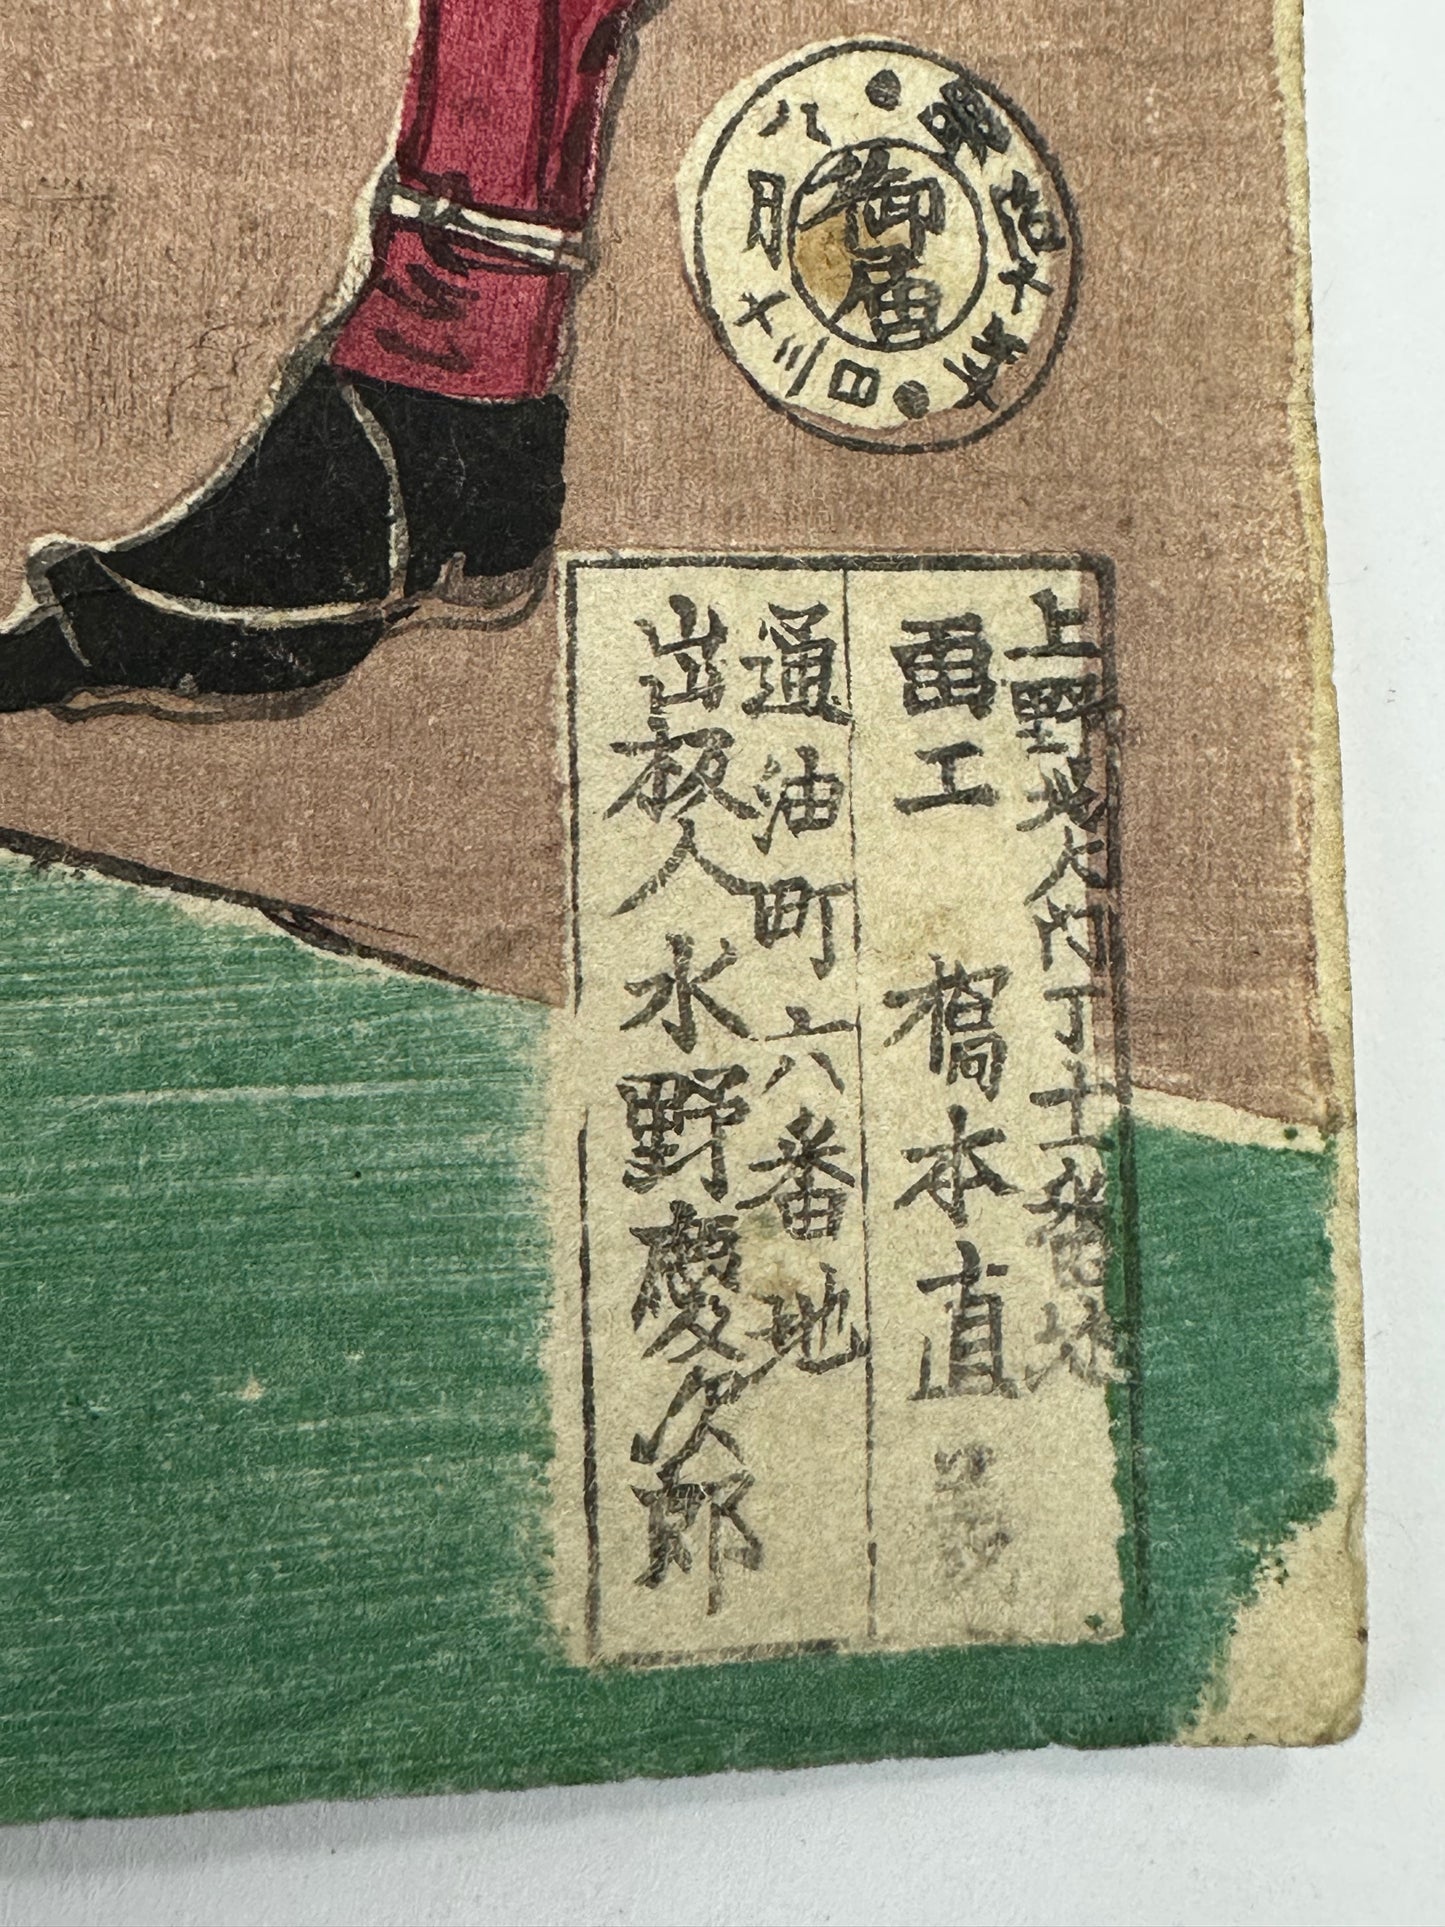 御届
明治十年
八月十三日
上野北大門丁十一番地
画工 橋本直義
通油町六番地
出板人 水野慶次郎